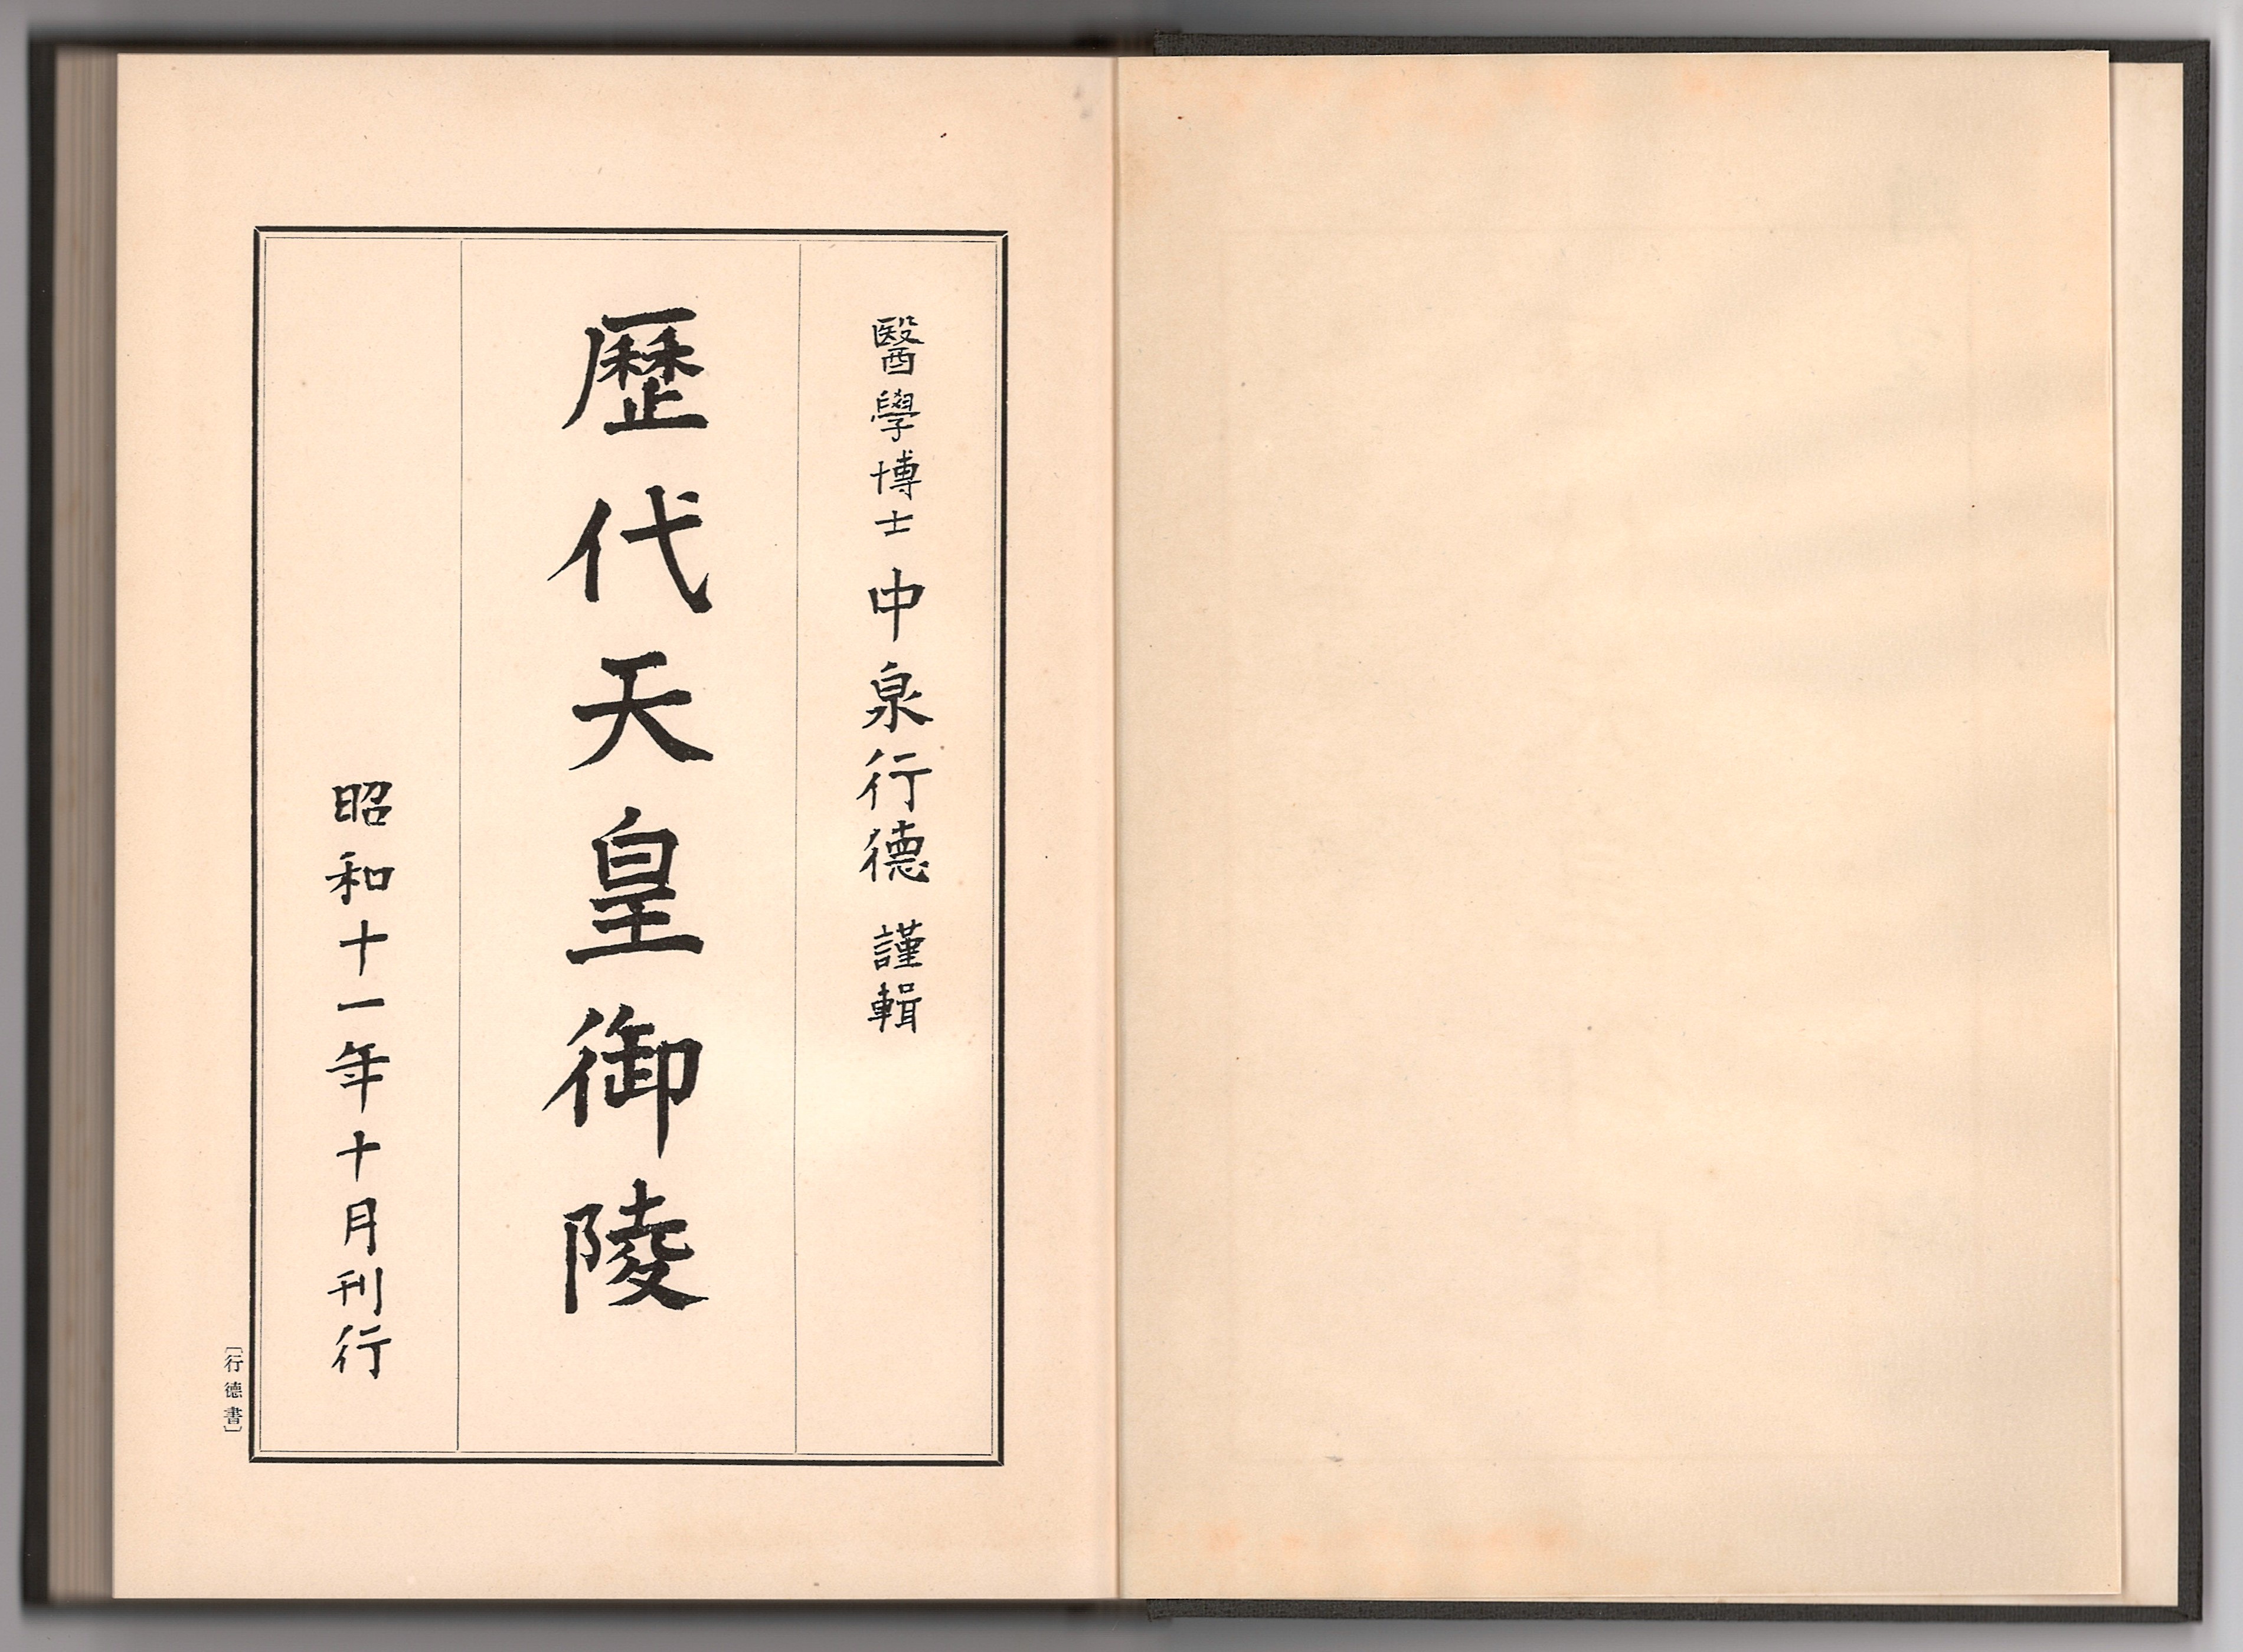 醫學博士 中泉行德 謹輯
歷代天皇御陵
昭和十一年十月刊行
〔行德書〕